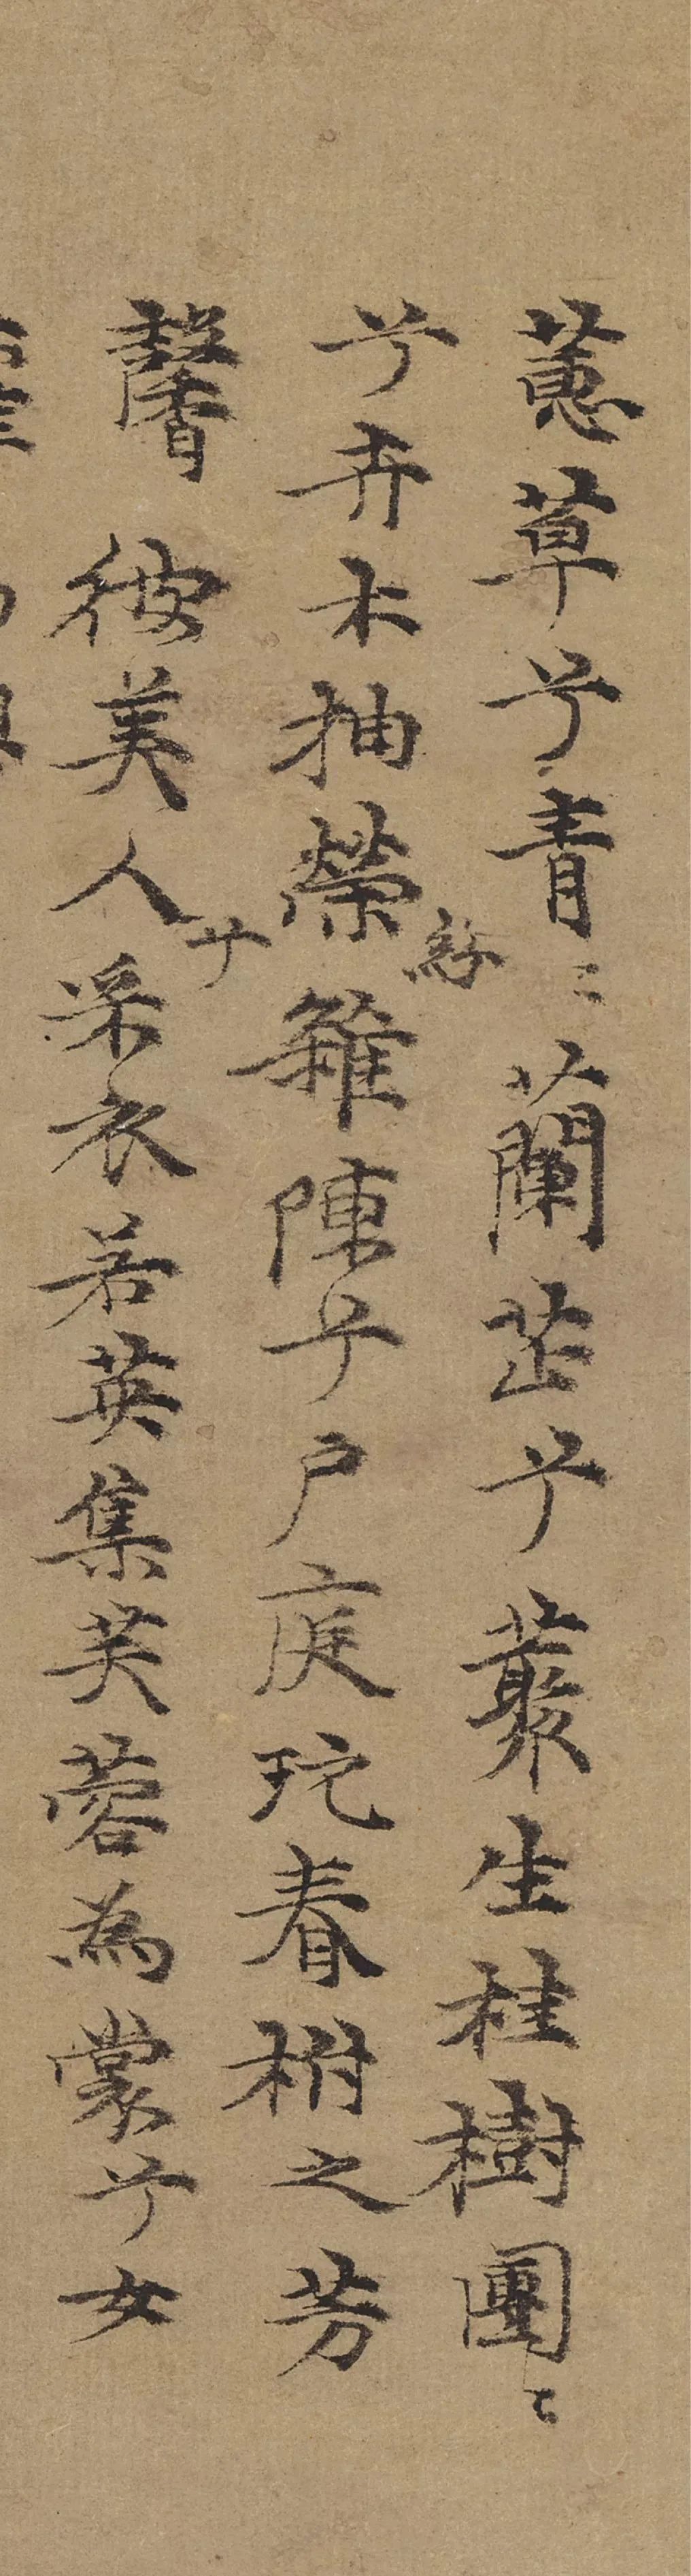 蕙草兮青〻蘭芷兮叢生桂樹團〻
兮卉木抽榮紛雜陳兮戶庭玩春柎之芳
馨彼美人兮采衣若英集芙蓉為裳兮女